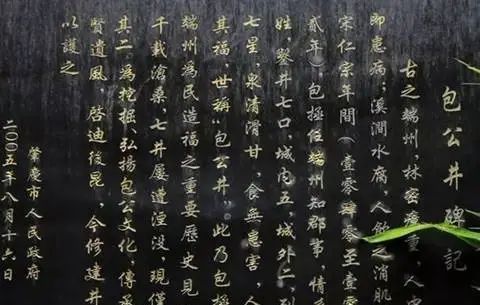 包公井碑記
古之端州，林密瘴重，人中
即患病；溪澗水腐，人飲之消肌
宋仁宗年間（壹零肆零至壹零
貳年），包拯任端州知郡事，情
姓鑿井七口，城内五，城外二，列
七星，泉清滑甘，食無患害，人
其福，世稱“包公井”。此乃包拯
端州爲民造福之重要歷史見
千載滄桑，七井屢遭湮没，現僅
其二。爲挖掘、弘揚包公文化，傳
賢遺風，啓迪後昆，今修建井
以護之
肇慶市人民政府
二〇〇五年八月十六日